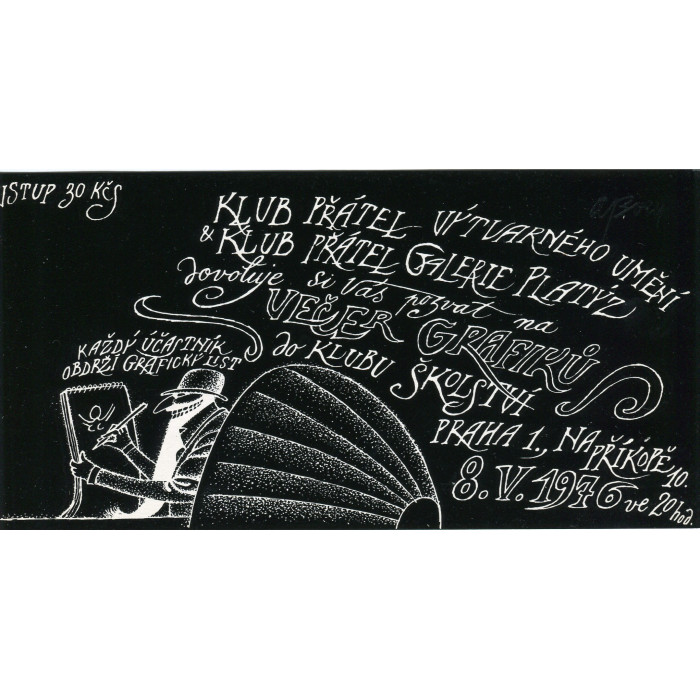 VSTUP 30 KČS
KLUB PŘÁTEL VÝTVARNÉHO UMĚNÍ
& KLUB PŘÁTEL GALERIE PLATÝZ
dovoluje si Vás pozvat na
VEČER GRAFIKŮ
do KLUBU ŠKOLSTVÍ
PRAHA 1., NA PŘÍKOPĚ 10.
8. V. 1976 ve 20 hod.
KAŽDÝ ÚČASTNÍK
OBDRŽÍ GRAFICKÝ LIST